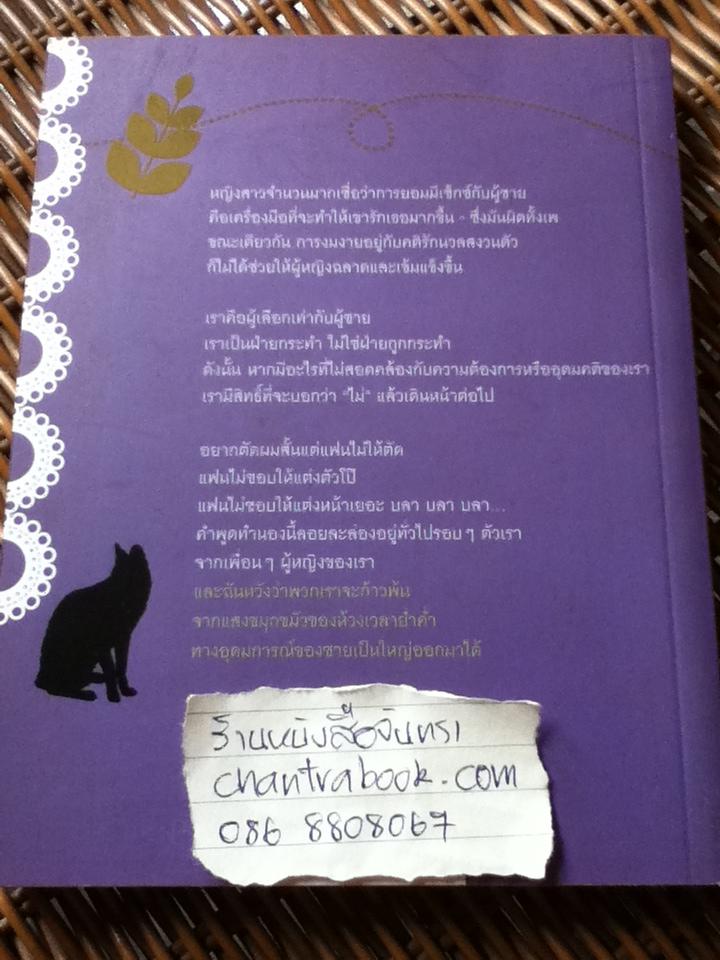 หญิงสาวจำนวนมากเชื่อว่าการยอมมีเซ็กซ์กับผู้ชาย
คือเครื่องมือที่จะทำให้เขารักเธอมากขึ้น - ซึ่งมันผิดทั้งเพ
ขณะเดียวกัน การงมงายอยู่กับคติรักนวลสงวนตัว
ก็ไม่ได้ช่วยให้ผู้หญิงฉลาดและเข้มแข็งขึ้น
เราคือผู้เลือกเท่ากับผู้ชาย
เราเป็นฝ่ายกระทำ ไม่ใช่ฝ่ายถูกกระทำ
ดังนั้น หากมีอะไรที่ไม่สอดคล้องกับความต้องการหรืออุดมคติของเรา
เรามีสิทธิ์ที่จะบอกว่า "ไม่" แล้วเดินหน้าต่อไป
อยากตัดผมสั้นแต่แฟนไม่ให้ตัด
แฟนไม่ชอบให้แต่งตัวโป๊
แฟนไม่ชอบให้แต่งหน้าเยอะ บลา บลา บลา...
คำพูดทำนองนี้ลอยละล่องอยู่ทั่วไปรอบๆ ตัวเรา
จากเพื่อนๆ ผู้หญิงของเรา
และฉันหวังว่าพวกเราจะก้าวพ้น
จากแสงขมุกขมัวของห้วงเวลาย่ำค่ำ
ทางอุดมการณ์ของชายเป็นใหญ่ออกมาได้
ร้านหนังสือจันทรา
chantrabook.com
086 8808067